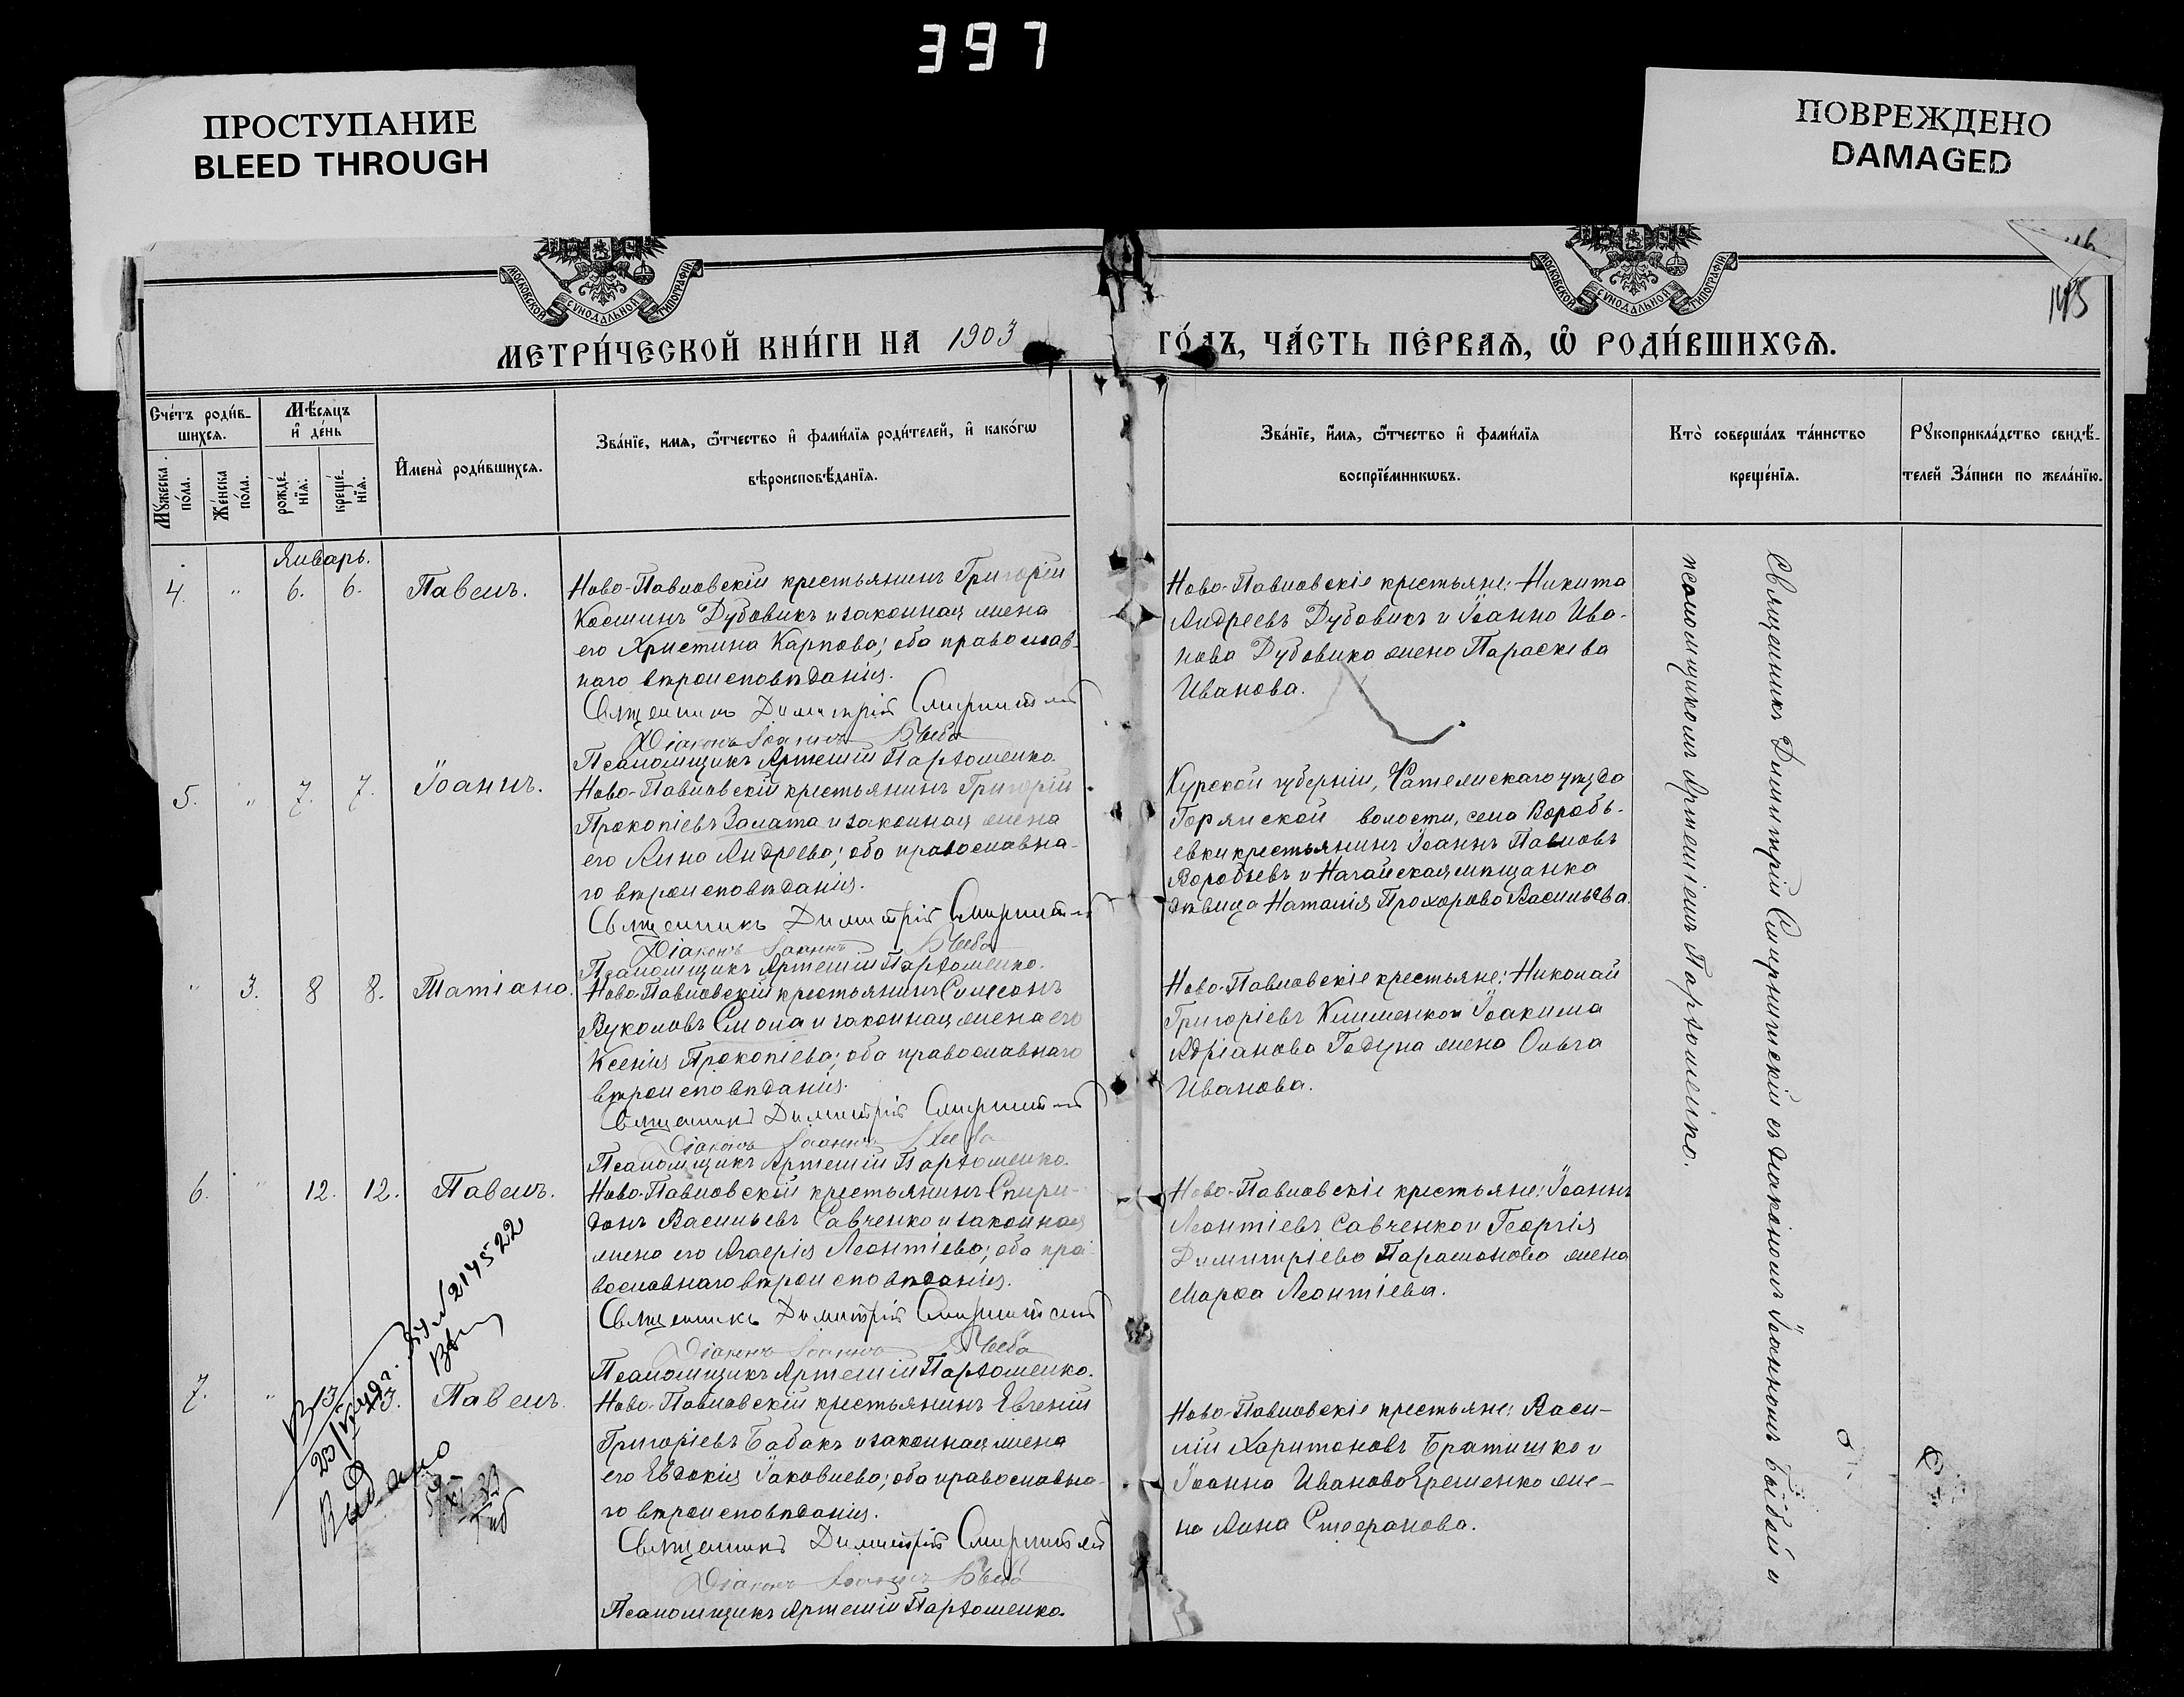 397
ПРОСТУПАНИЕ
BLEED THROUGH
ПОВРЕЖДЕНО
DAMAGED
МОСКОВСКОЙ СѴНОДАЛЬНОЙ ТИПОГРАФІИ
МОСКОВСКОЙ СѴНОДАЛЬНОЙ ТИПОГРАФІИ
145
МЕТРИ́ЧЕСКОЙ КНИ́ГИ НА 1903 ГО́ДЪ, ЧА́СТЬ ПЕ́РВАѦ, Ѡ РОДИ́ВШИХСѦ.
Сче́тъ роди́в-
шихсѧ.
Мꙋ́жеска по́ла.
Же́нска по́ла.
Мѣ́сѧцъ
и҆ де́нь
рожде́-
нїѧ.
креще́-
нїѧ.
И҆мена̀ роди́вшихсѧ.
Зва́нїе, имѧ, ѿтчество и҆ фами́лїѧ роди́телей, и҆ како́гѡ
вѣроисповѣ́данїѧ.
Зва́нїе, и҆́мѧ, ѿтчество и҆ фами́лїѧ
воспрїе́мникѡвъ.
Кто̀ соверша́лъ та́инство
креще́нїѧ.
Рꙋкоприкла́дство свидѣ́-
телей За́писи по жела́нїю.
Январь.
4. " 6. 6. Павелъ.
Ново-Павловскій крестьянинъ Григорій
Косминъ Дубовикъ и законная жена
его Христина Карпова; оба православ-
наго вѣроисповѣданія.
Священникъ Димитрій
Діаконъ Іоаннъ
Псаломщикъ Артемій Пархоменко.
Ново-Павловскіе крестьяне: Никита
Андреевъ Дубовикъ и Іоанна Ива-
нова Дубовика жена Параскева
Иванова.
5. " 7. 7. Іоаннъ.
Ново-Павловскій крестьянинъ Григорій
Прокопіевъ Залата и законная жена
его Анна Андреева; оба православна-
го вѣроисповѣданія.
Священникъ Димитрій
Діаконъ Іоаннъ
Псаломщикъ Артемій Пархоменко.
Курской губерніи, уѣзда
волости, села Воробь-
евки крестьянинъ Іоаннъ Павловъ
Воробьевъ и Ногайская мѣщанка
дѣвица Наталія Прохорова Васильева.
" 3. 8 8. Татіана.
Ново-Павловскій крестьянинъ Симеонъ
Вуколовъ Смола и законная жена его
Ксенія Прокопіева; оба православнаго
вѣроисповѣданія.
Священникъ Димитрій
Діаконъ Іоаннъ
Псаломщикъ Артемій Пархоменко.
Ново-Павловскіе крестьяне: Николай
Григоріевъ Клименко и Іоакима
Адріанова Годуна жена Ольга
Иванова.
6. " 12. 12. Павелъ.
Ново-Павловскій крестьянинъ Спири-
донъ Васильевъ Савченко и законная
жена его Агаѳія Леонтіева; оба пра-
вославнаго вѣроисповѣданія.
Священникъ Димитрій
Діаконъ Іоаннъ
Псаломщикъ Артемій Пархоменко.
Ново-Павловскіе крестьяне: Іоаннъ
Леонтіевъ Савченко и Георгія
Димитріева Парамонова жена
Марѳа Леонтіева.
7. " 13 13. Павелъ.
Ново-Павловскій крестьянинъ Евгеній
Григоріевъ Бабакъ и законная жена
его Евдокія Іаковлева; оба православна-
го вѣроисповѣданія.
Священникъ Димитрій
Діаконъ Іоаннъ
Псаломщикъ Артемій Пархоменко.
Ново-Павловскіе крестьяне: Васи-
лій Харитоновъ Братишко и
Іоанна Иванова Ерешенко же-
на Анна Стефанова.
Выдано
Священникъ Димитрій съ діакономъ Іоанномъ и
псаломщикомъ Артеміемъ Пархоменко.